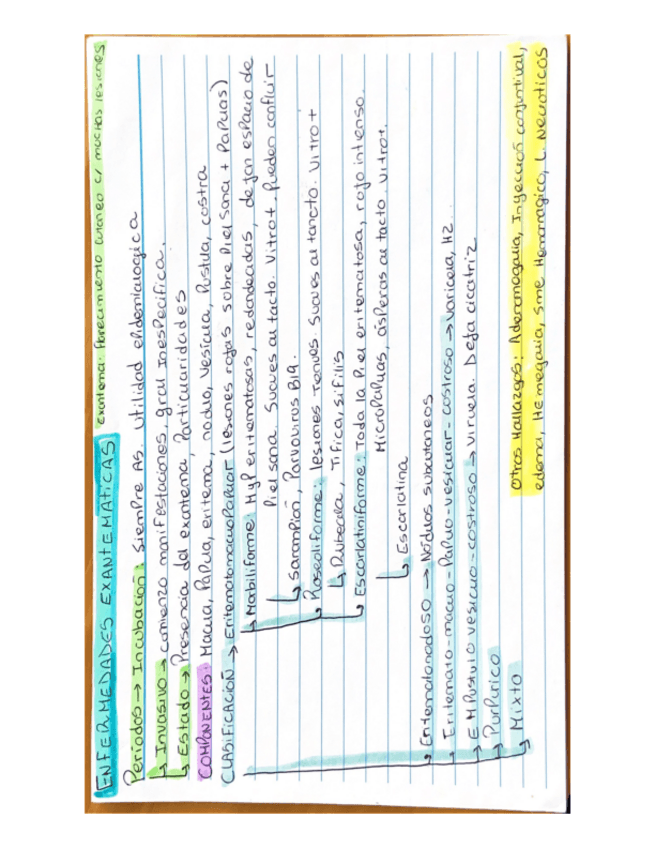 ENFERMEDADES EXANTEMATICAS Exantema: florecimiento cutaneo c/ muchas lesiones
Periodos → Incubación: Siempre AS. Utilidad epidemiologica
↳ Invasivo → comienzo manifestaciones, gral inespecifica.
↳ Estado → Presencia del exantema, Particularidades
COMPONENTES: Macula, Papula, eritema, nodulo, vesicula, Pustula, costra
CLASIFICACIÓN → Eritematomaculopapular (lesiones rojas sobre Piel sana + Papulas)
↳ Morbiliforme: MyP eritematosas, redondeadas, dejan espacio de
Piel sana. Suaves al tacto. Vitro+, Pueden confluir
↳ Sarampión, Parvovirus B19.
↳ Roseoliforme: lesiones tenues. Suaves al tancto. Vitro+
↳ Rubeola, Tifica, sifilis
↳ Escarlatiniforme: Toda la Piel eritematosa, rojo intenso.
Micropapulas, ásperas al tacto. Vitro+.
↳ Escarlatina
↳ Eritematonodoso → Nódulos subcutaneos
↳ Eritemato-maculo-Papulo-vesicular-costroso → varicela, HZ...
↳ EMPustulo vesiculo-costroso → viruela. Deja cicatriz
↳ Purpurico
↳ Mixto
Otros Hallazgos: Adenomegalia, Inyección conjuntival,
edema, HEmegalia, Sme Hemorragico, L. Neuoticos